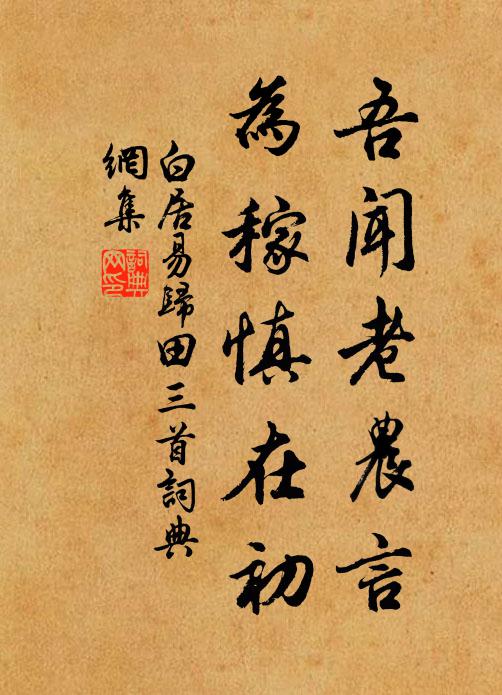 吾聞老農言
為稼慎在初
白居易歸田三首詞典
網集
詞典
网印